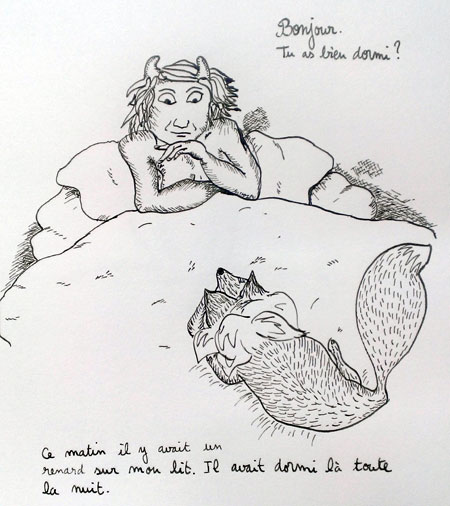 Bonjour.
Tu as bien dormi?
Ce matin il y avait un
renard sur mon lit. Il avait dormi là toute
la nuit.